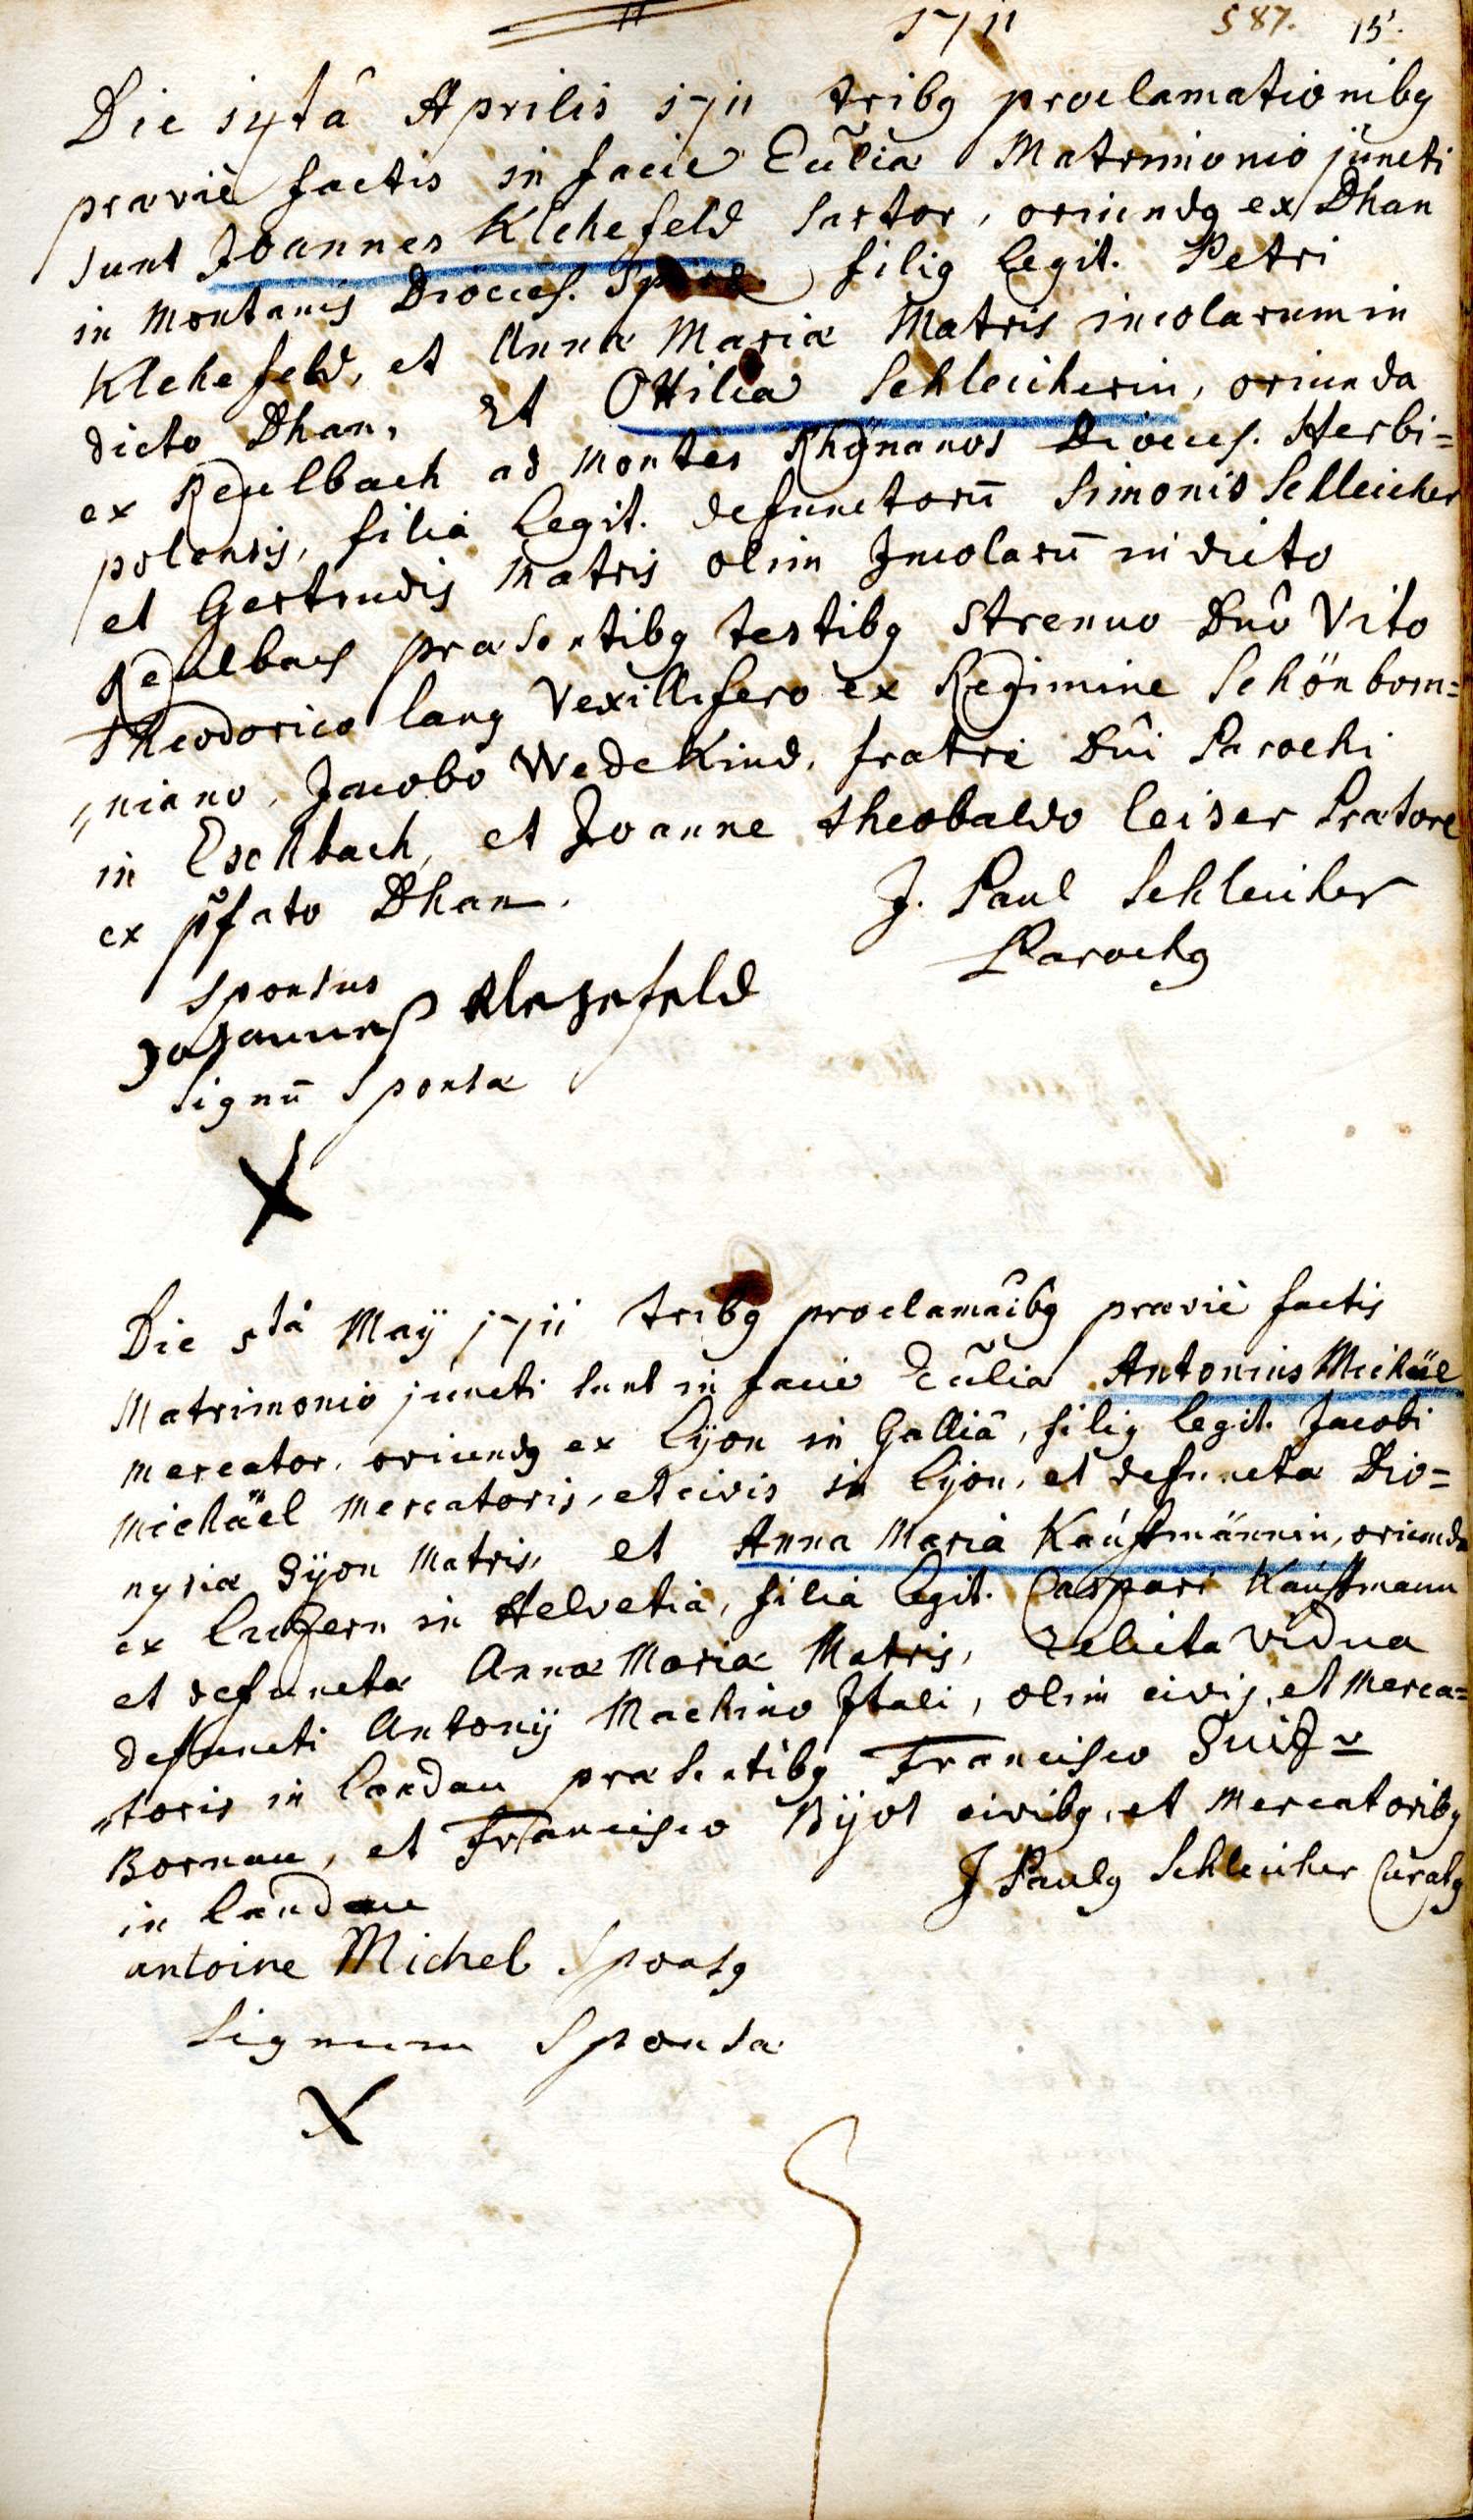 1711 587. 15.
Die 14tâ Aprilis 1711 tribq proclamationibq
præviè factis in facie Eccliæ Matrimonio juncti
sunt Joannes Klehefeld sartor, oriundq ex Dhan
in montanis Dioeces. Spire filiq legit. Petri
Klehefeld, et Annæ Mariæ Matris incolarum in
dicto Dhan, et Ottilia Schleicherin, oriunda
ex Reulbach ad montes Rhÿnanos Dioeces. Herbi=
polensis, filia legit. defunctorū Simonis Schleicher
et Gertrudis Matris olim Incolarū in dicto
Reulbach præsentibq testibq strenuo Dnô Vito
Theodorico lang Vexillifero ex Regimine Schönborn=
niano, Jacobo Wedekind, fratre Dni Parochi
in Eschbach, et Joanne theobaldo leiser Prætore
ex p̃fato Dhan.
J. Paul Schleicher
Parochq
sponsus
Johannes Klehefeld
Signū Sponsæ
X
Die 5tâ Maÿ 1711 tribq proclamãibq præviè factis
Matrimonio juncti sunt in facie Eccliæ Antonius Michäel
mercator, oriundq ex Lÿon in Galliâ, filiq legit. Jacobi
Michäel mercatoris, et civis in Lÿon, et defunctæ Dio=
nysiæ Dÿon Matris, et Anna Maria Kauffmännin, oriunda
ex Luzern in Helvetia, filia legit. Caspari Kauffmann
et defunctæ Annæ Mariæ Matris, relicta vidua
defuncti Antonÿ Machino Itali, olim civis, et Merca=
toris in Landau præsentibq Francisco
Bornau, et Francisco Bÿot civibq, et Mercatoribq
in Landau
J Paulq Schleicher Curatq
antoine Michel Sponsq
Signum Sponsæ
X